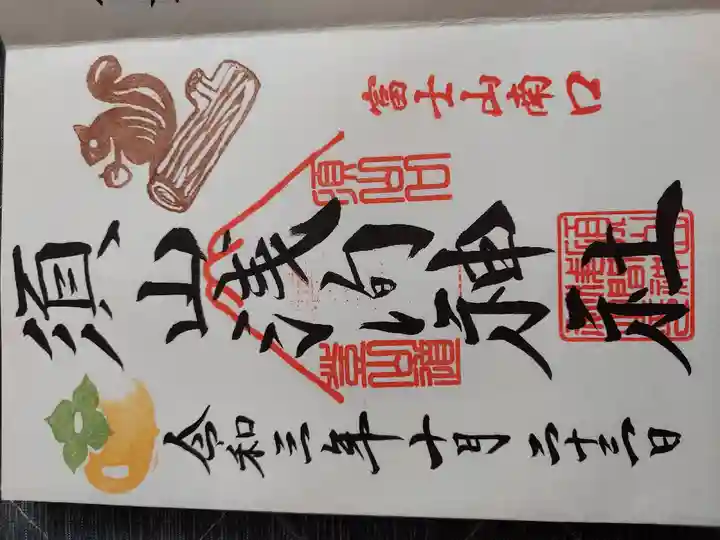 富士山南口
須山浅間神社
令和三年十月二十三日